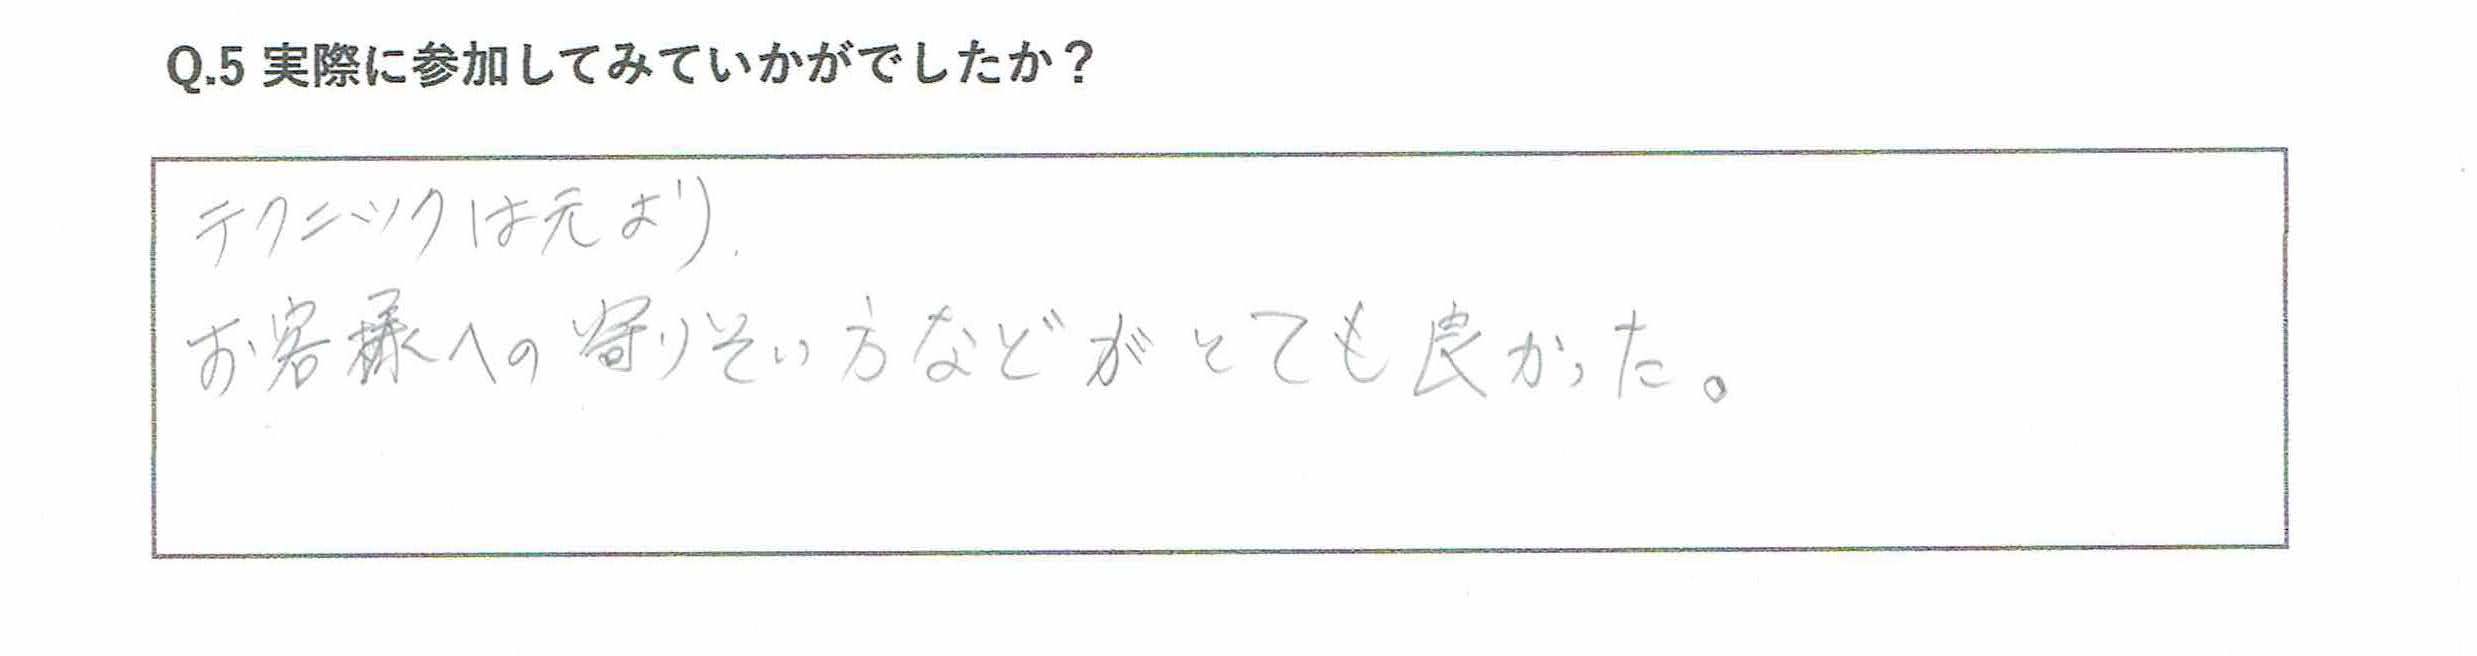 Q.5 実際に参加してみていかがでしたか？
テクニックは元より、
お客様への寄りそい方などがとても良かった。